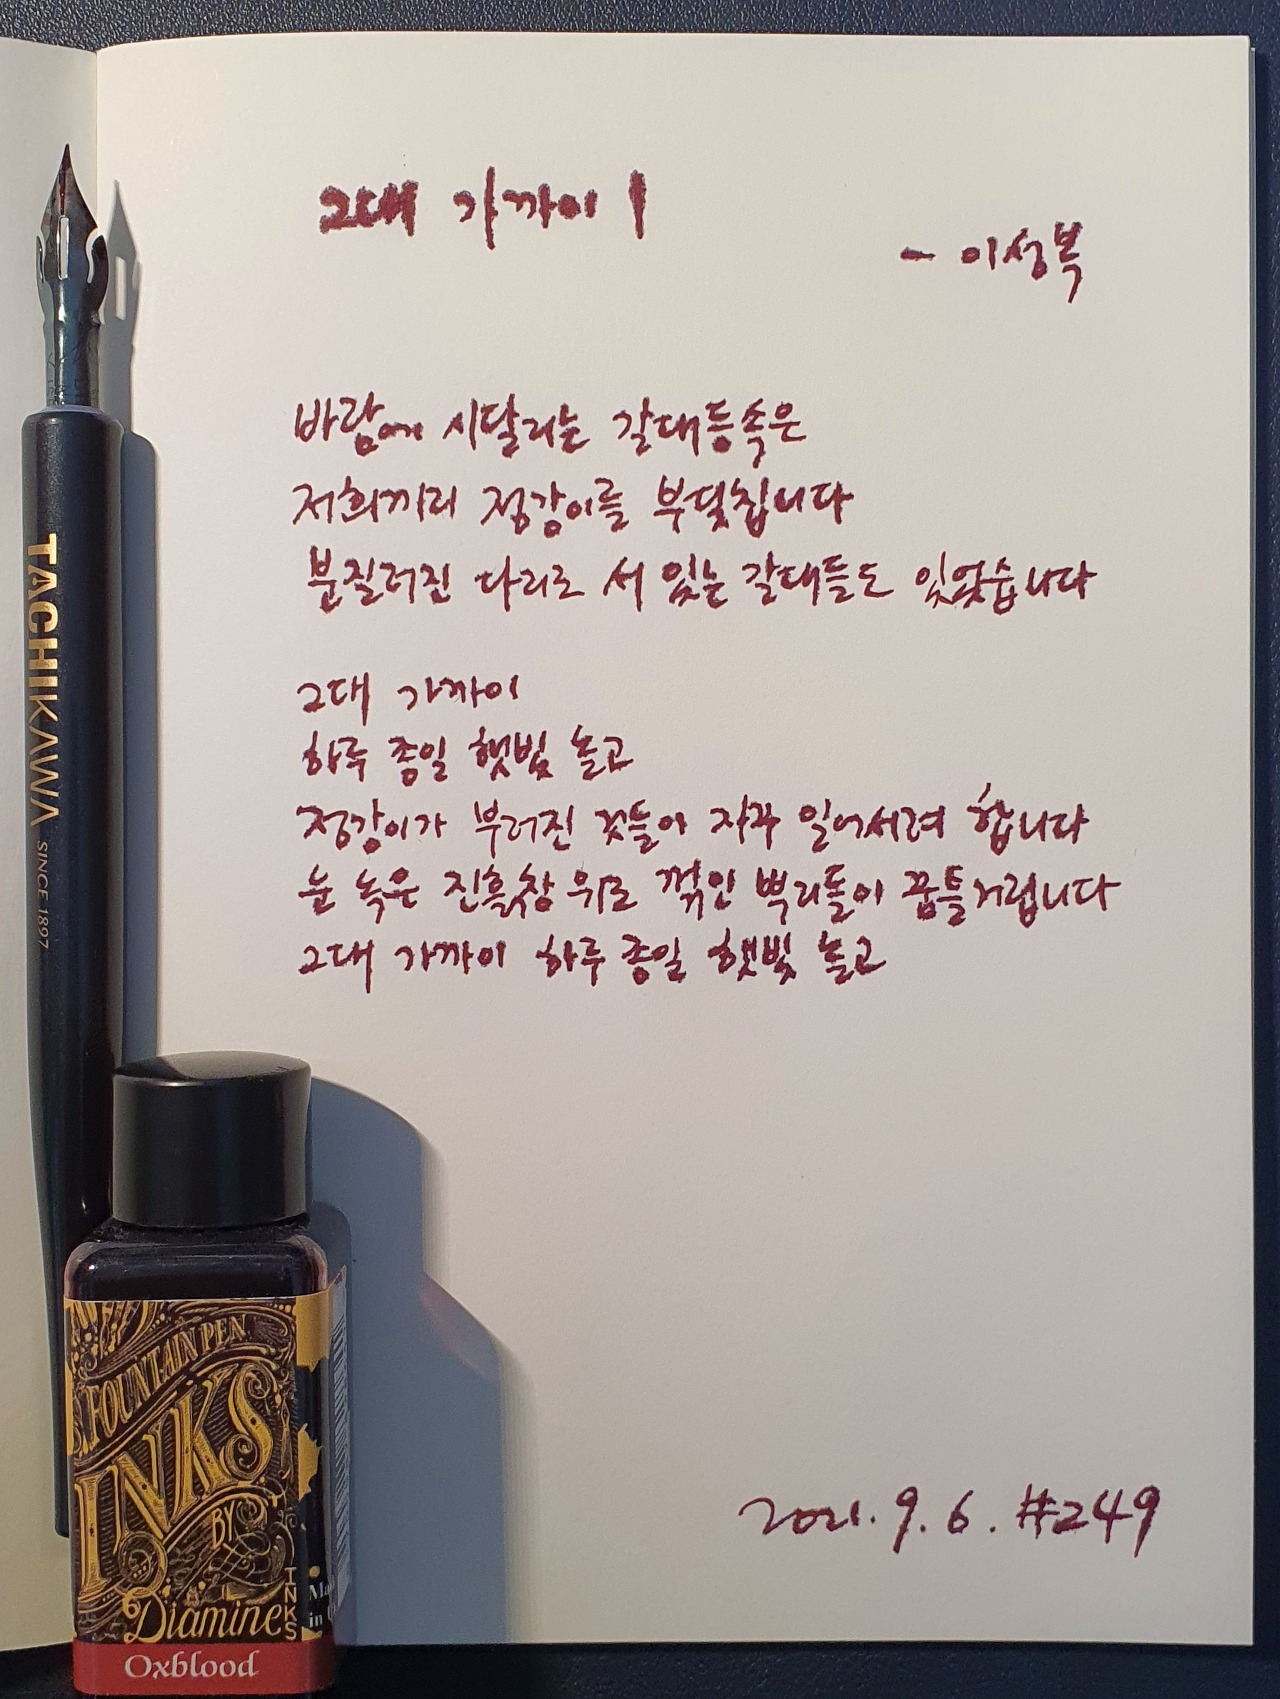 그대 가까이 1
- 이성복
바람에 시달리는 갈대등속은
저희끼리 정강이를 부딪칩니다
분질러진 다리로 서 있는 갈대들도 있었습니다
그대 가까이
하루 종일 햇빛 놀고
정강이가 부러진 것들이 자꾸 일어서려 합니다
눈 녹은 진흙창 위로 꺾인 뿌리들이 꿈틀거립니다
그대 가까이 하루 종일 햇빛 놀고
2021. 9. 6. #249
TACHIKAWA SINCE 1897
FOUNTAIN PEN
INKS
BY
Diamine
INKS
in
Oxblood